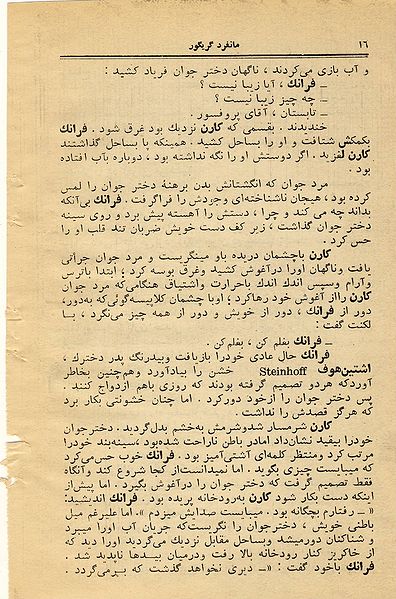 ۱۶ مانفرد گریگور
و آب بازی می‌کردند ، ناگهان دختر جوان فریاد کشید :
ـ فرانك ، آیا زیبا نیست ؟
ـ چه چیز زیبا نیست ؟
ـ تابستان ، آقای پروفسور .
خندیدند . بقسمی که کارن نزدیك بود غرق شود . فرانك
بکمکش شتافت و او را بساحل کشید . همینکه با بساحل گذاشتند
کارن لغزید . اگر دوستش او را نگه نداشته بود ، دوباره بآب افتاده
بود .
مرد جوان که انگشتانش بدن برهنهٔ دختر جوان را لمس
کرده بود ، هیجان ناشناخته‌ای وجودش را فراگرفت . فرانك بی‌آنکه
بداند چه می کند و چرا ، دستش را آهسته پیش برد و روی سینه
دختر جوان گذاشت ، زیر کف دست خویش ضربان تند قلب او را
حس کرد .
کارن باچشمان دریده باو مینگریست و مرد جوان جرأتی
یافت وناگهان اورا درآغوش کشید وغرق بوسه کرد ؛ ابتدا باترس
وآرام وسپس اندك اندك باحرارت واشتیاق هنگامی‌که مرد جوان
کارن رااز آغوش خود رهاکرد ؛ اوبا چشمان کلاپیسه‌گوئی‌که به‌دور،
دور از فرانك ، دور از خویش و دور از همه چیز می‌نگرد ، با
لکنت گفت :
ـ فرانك بغلم کن ، بغلم‌کن .
فرانك حال عادی خودرا بازیافت وبیدرنگ پدر دخترك ،
اشتین‌هوف Steinhoff خشن را بیادآورد وهم‌چنین بخاطر
آوردکه هردو تصمیم گرفته بودند که روزی باهم ازدواج کنند .
پس دختر جوان را ازخود دورکرد . اما چنان خشونتی بکار برد
که هرگز قصدش را نداشت .
کارن شرمسار شدوشرمش به‌خشم بدل‌گردید . دخترجوان
خودرا بیقید نشان‌داد امادر باطن ناراحت شده‌بود ، سینه‌بند خودرا
مرتب کرد ومنتظر کلمه‌ای آشتی‌آمیز بود . فرانك خوب حس‌می‌کرد
که میبایست چیزی بگوید . اما نمیدانست‌از کجا شروع کند وآنگاه
فقط تصمیم گرفت که دختر جوان را درآغوش بگیرد . اما پیش‌از
اینکه دست بکار شود کارن به‌رودخانه پریده بود . فرانك اندیشید:
«ـ رفتارم بچگانه بود . میبایست صدایش میزدم .» اما علیرغم میل
باطنی خویش ، دخترجوان را نگریست‌که جریان آب اورا میبرد
و شناکنان دورمیشد وبساحل مقابل نزدیك می‌گردید اورا دید که
از خاکریز کنار رودخانه بالا رفت ودرمیان بیدها ناپدید شد .
فرانك باخود گفت : «ـ دیری نخواهد گذشت که برمی‌گردد .